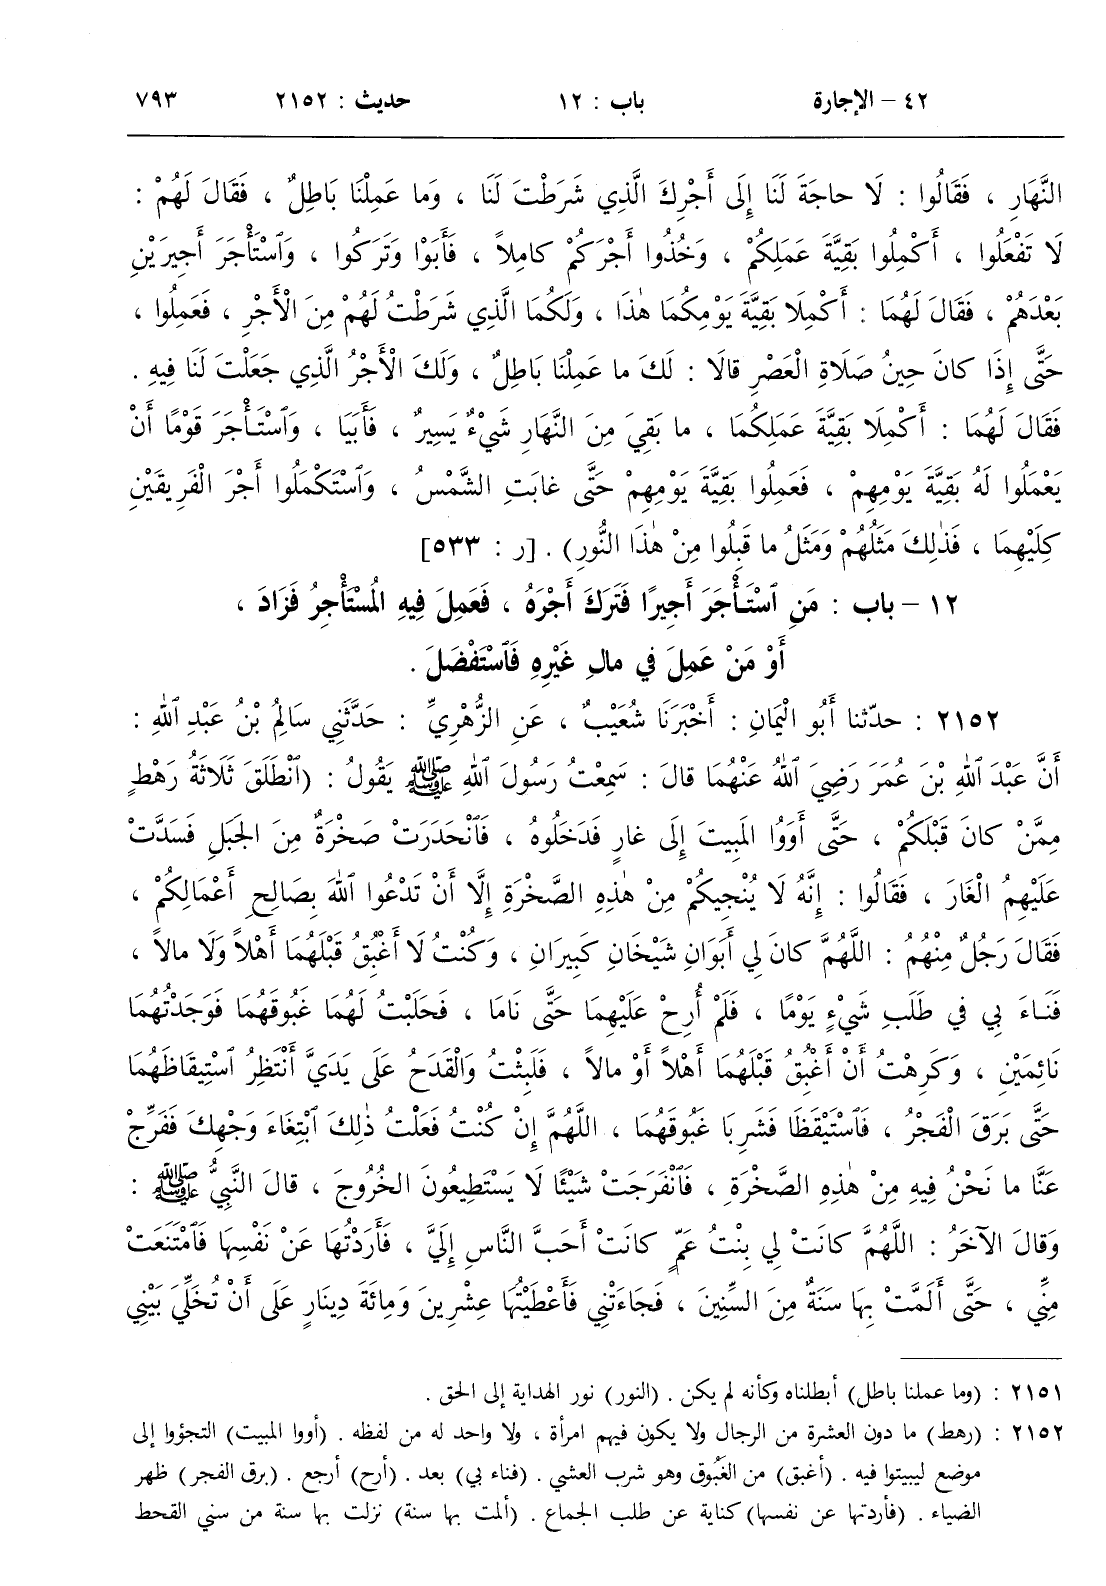 ٤٢ – الإجارة باب : ١٢ حديث : ٢١٥٢ ٧٩٣
النَّهَارِ ، فَقَالُوا : لَا حاجَةَ لَنَا إِلَى أَجْرِكَ الَّذِي شَرَطْتَ لَنَا ، وَما عَمِلْنَا بَاطِلٌ ، فَقَالَ لَهُمْ :
لَا تَفْعَلُوا ، أَكْمِلُوا بَقِيَّةَ عَمَلِكُمْ ، وَخُذُوا أَجْرَكُمْ كامِلاً ، فَأَبَوْا وَتَرَكُوا ، وَٱسْتَأْجَرَ أَجِيرَيْنِ
بَعْدَهُمْ ، فَقَالَ لَهُمَا : أَكْمِلَا بَقِيَّةَ يَوْمِكُمَا هٰذَا ، وَلَكُمَا الَّذِي شَرَطْتُ لَهُمْ مِنَ الْأَجْرِ ، فَعَمِلُوا ،
حَتَّى إِذَا كانَ حِينُ صَلَاةِ الْعَصْرِ قالَا : لَكَ ما عَمِلْنَا بَاطِلٌ ، وَلَكَ الْأَجْرُ الَّذِي جَعَلْتَ لَنَا فِيهِ .
فَقَالَ لَهُمَا : أَكْمِلَا بَقِيَّةَ عَمَلِكُمَا ، ما بَقِيَ مِنَ النَّهَارِ شَيْءٌ يَسِيرٌ ، فَأَبَيَا ، وَٱسْتَأْجَرَ قَوْمًا أَنْ
يَعْمَلُوا لَهُ بَقِيَّةَ يَوْمِهِمْ ، فَعَمِلُوا بَقِيَّةَ يَوْمِهِمْ حَتَّى غابَتِ الشَّمْسُ ، وَٱسْتَكْمَلُوا أَجْرَ الْفَرِيقَيْنِ
كِلَيْهِمَا ، فَذٰلِكَ مَثَلُهُمْ وَمَثَلُ ما قَبِلُوا مِنْ هٰذَا النُّورِ) . [ر : ٥٣٣]
١٢ – باب : مَنِ ٱسْتَأْجَرَ أَجِيرًا فَتَرَكَ أَجْرَهُ ، فَعَمِلَ فِيهِ الْمُسْتَأْجِرُ فَزَادَ ،
أَوْ مَنْ عَمِلَ في مالِ غَيْرِهِ فَٱسْتَفْضَلَ .
٢١٥٢ : حدّثنا أَبُو الْيَمَانِ : أَخْبَرَنَا شُعَيْبٌ ، عَنِ الزُّهْرِيِّ : حَدَّثَنِي سَالِمُ بْنُ عَبْدِ ٱللهِ :
أَنَّ عَبْدَ ٱللهِ بْنَ عُمَرَ رَضِيَ ٱللهُ عَنْهُمَا قالَ : سَمِعْتُ رَسُولَ ٱللهِ ﷺ يَقُولُ : (ٱنْطَلَقَ ثَلَاثَةُ رَهْطٍ
مِمَّنْ كانَ قَبْلَكُمْ ، حَتَّى أَوَوُا الْمَبِيتَ إِلَى غارٍ فَدَخَلُوهُ ، فَٱنْحَدَرَتْ صَخْرَةٌ مِنَ الْجَبَلِ فَسَدَّتْ
عَلَيْهِمُ الْغَارَ ، فَقَالُوا : إِنَّهُ لَا يُنْجِيكُمْ مِنْ هٰذِهِ الصَّخْرَةِ إِلَّا أَنْ تَدْعُوا ٱللهَ بِصَالِحِ أَعْمَالِكُمْ ،
فَقَالَ رَجُلٌ مِنْهُمُ : اللَّهُمَّ كانَ لِي أَبَوَانِ شَيْخَانِ كَبِيرَانِ ، وَكُنْتُ لَا أَغْبُقُ قَبْلَهُمَا أَهْلاً وَلَا مالاً ،
فَنَاءَ بِي في طَلَبِ شَيْءٍ يَوْمًا ، فَلَمْ أُرِحْ عَلَيْهِمَا حَتَّى نَاما ، فَحَلَبْتُ لَهُمَا غَبُوقَهُمَا فَوَجَدْتُهُمَا
نَائِمَيْنِ ، وَكَرِهْتُ أَنْ أَغْبُقُ قَبْلَهُمَا أَهْلاً أَوْ مالاً ، فَلَبِثْتُ وَالْقَدَحُ عَلَى يَدَيَّ أَنْتَظِرُ ٱسْتِيقَاظَهُمَا
حَتَّى بَرَقَ الْفَجْرُ ، فَٱسْتَيْقَظَا فَشَرِبَا غَبُوقَهُمَا ، اللَّهُمَّ إِنْ كُنْتُ فَعَلْتُ ذٰلِكَ ٱبْتِغَاءَ وَجْهِكَ فَفَرِّجْ
عَنَّا ما نَحْنُ فِيهِ مِنْ هٰذِهِ الصَّخْرَةِ ، فَٱنْفَرَجَتْ شَيْئًا لَا يَسْتَطِيعُونَ الْخُرُوجَ ، قالَ النَّبِيُّ ﷺ :
وَقالَ الآخَرُ : اللَّهُمَّ كانَتْ لِي بِنْتُ عَمٍّ كانَتْ أَحَبَّ النَّاسِ إِلَيَّ ، فَأَرَدْتُهَا عَنْ نَفْسِهَا فَٱمْتَنَعَتْ
مِنِّي ، حَتَّى أَلَمَّتْ بِهَا سَنَةٌ مِنَ السِّنِينَ ، فَجَاءَتْنِي فَأَعْطَيْتُهَا عِشْرِينَ وَمِائَةَ دِينَارٍ عَلَى أَنْ تُخَلِّيَ بَيْنِي
٢١٥١ : (وما عملنا باطل) أبطلناه وكأنه لم يكن . (النور) نور الهداية إلى الحق .
٢١٥٢ : (رهط) ما دون العشرة من الرجال ولا يكون فيهم امرأة ، ولا واحد له من لفظه . (أووا المبيت) التجؤوا إلى
موضع ليبيتوا فيه . (أغبق) من الغَبُوق وهو شرب العشي . (فناء بي) بعد . (أرح) أرجع . (برق الفجر) ظهر
الضياء . (فأردتها عن نفسها) كناية عن طلب الجماع . (ألمت بها سنة) نزلت بها سنة من سني القحط